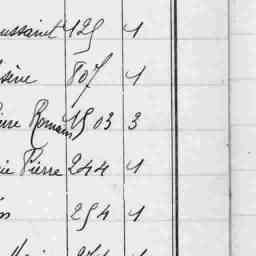 ussaint 129 1
sine 807 1
erre Romain 1503 3
ie Pierre 244 1
254 1